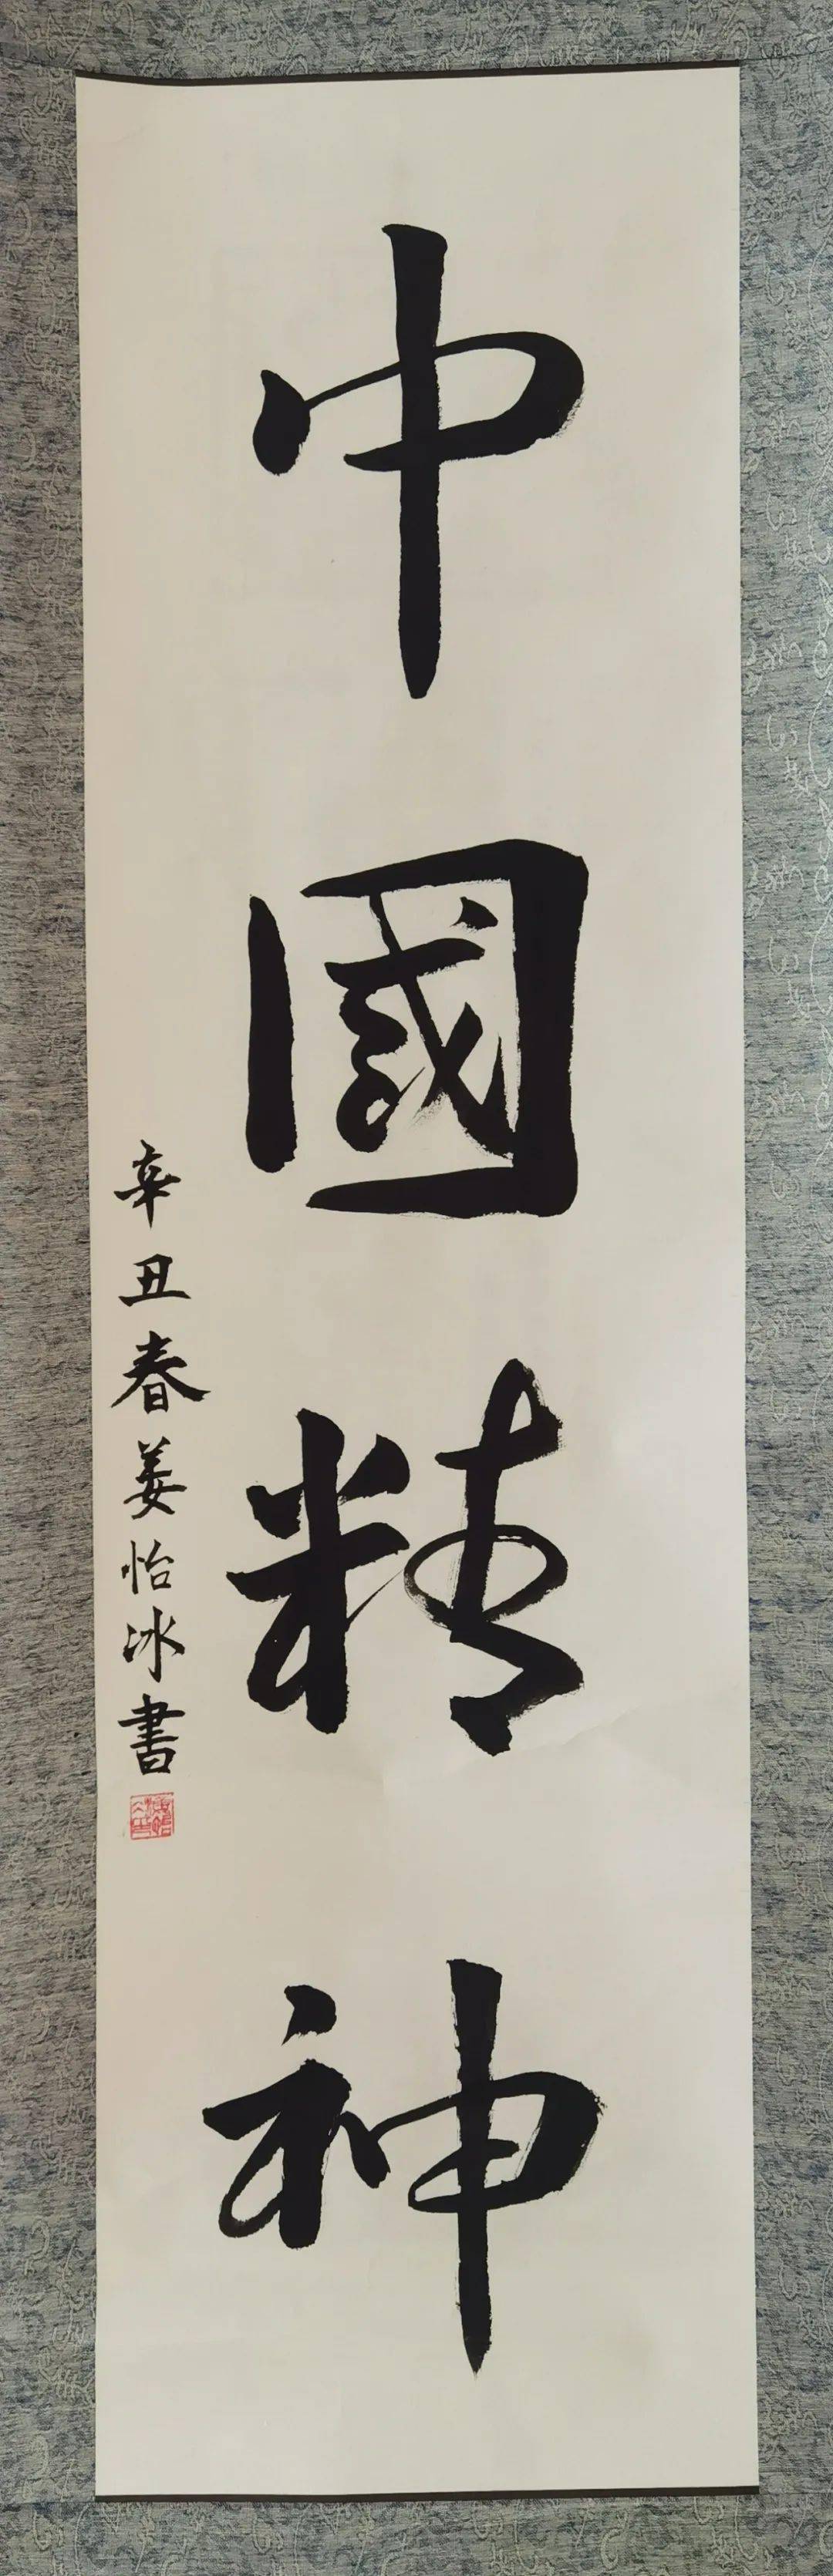 中國精神
辛丑春姜怡冰書